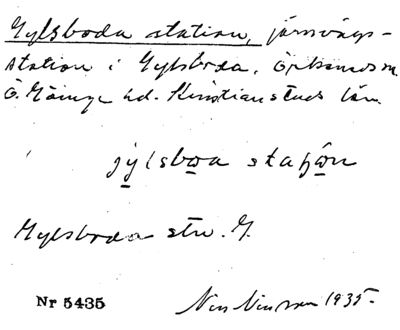 Gylsboda station, järnvägs-
station i Gylsboda, Örkeneds sn
Ö. Göinge hd. Kristianstads län
jylsboa
Gylsboda stn. G.
Nr 5435 1935.